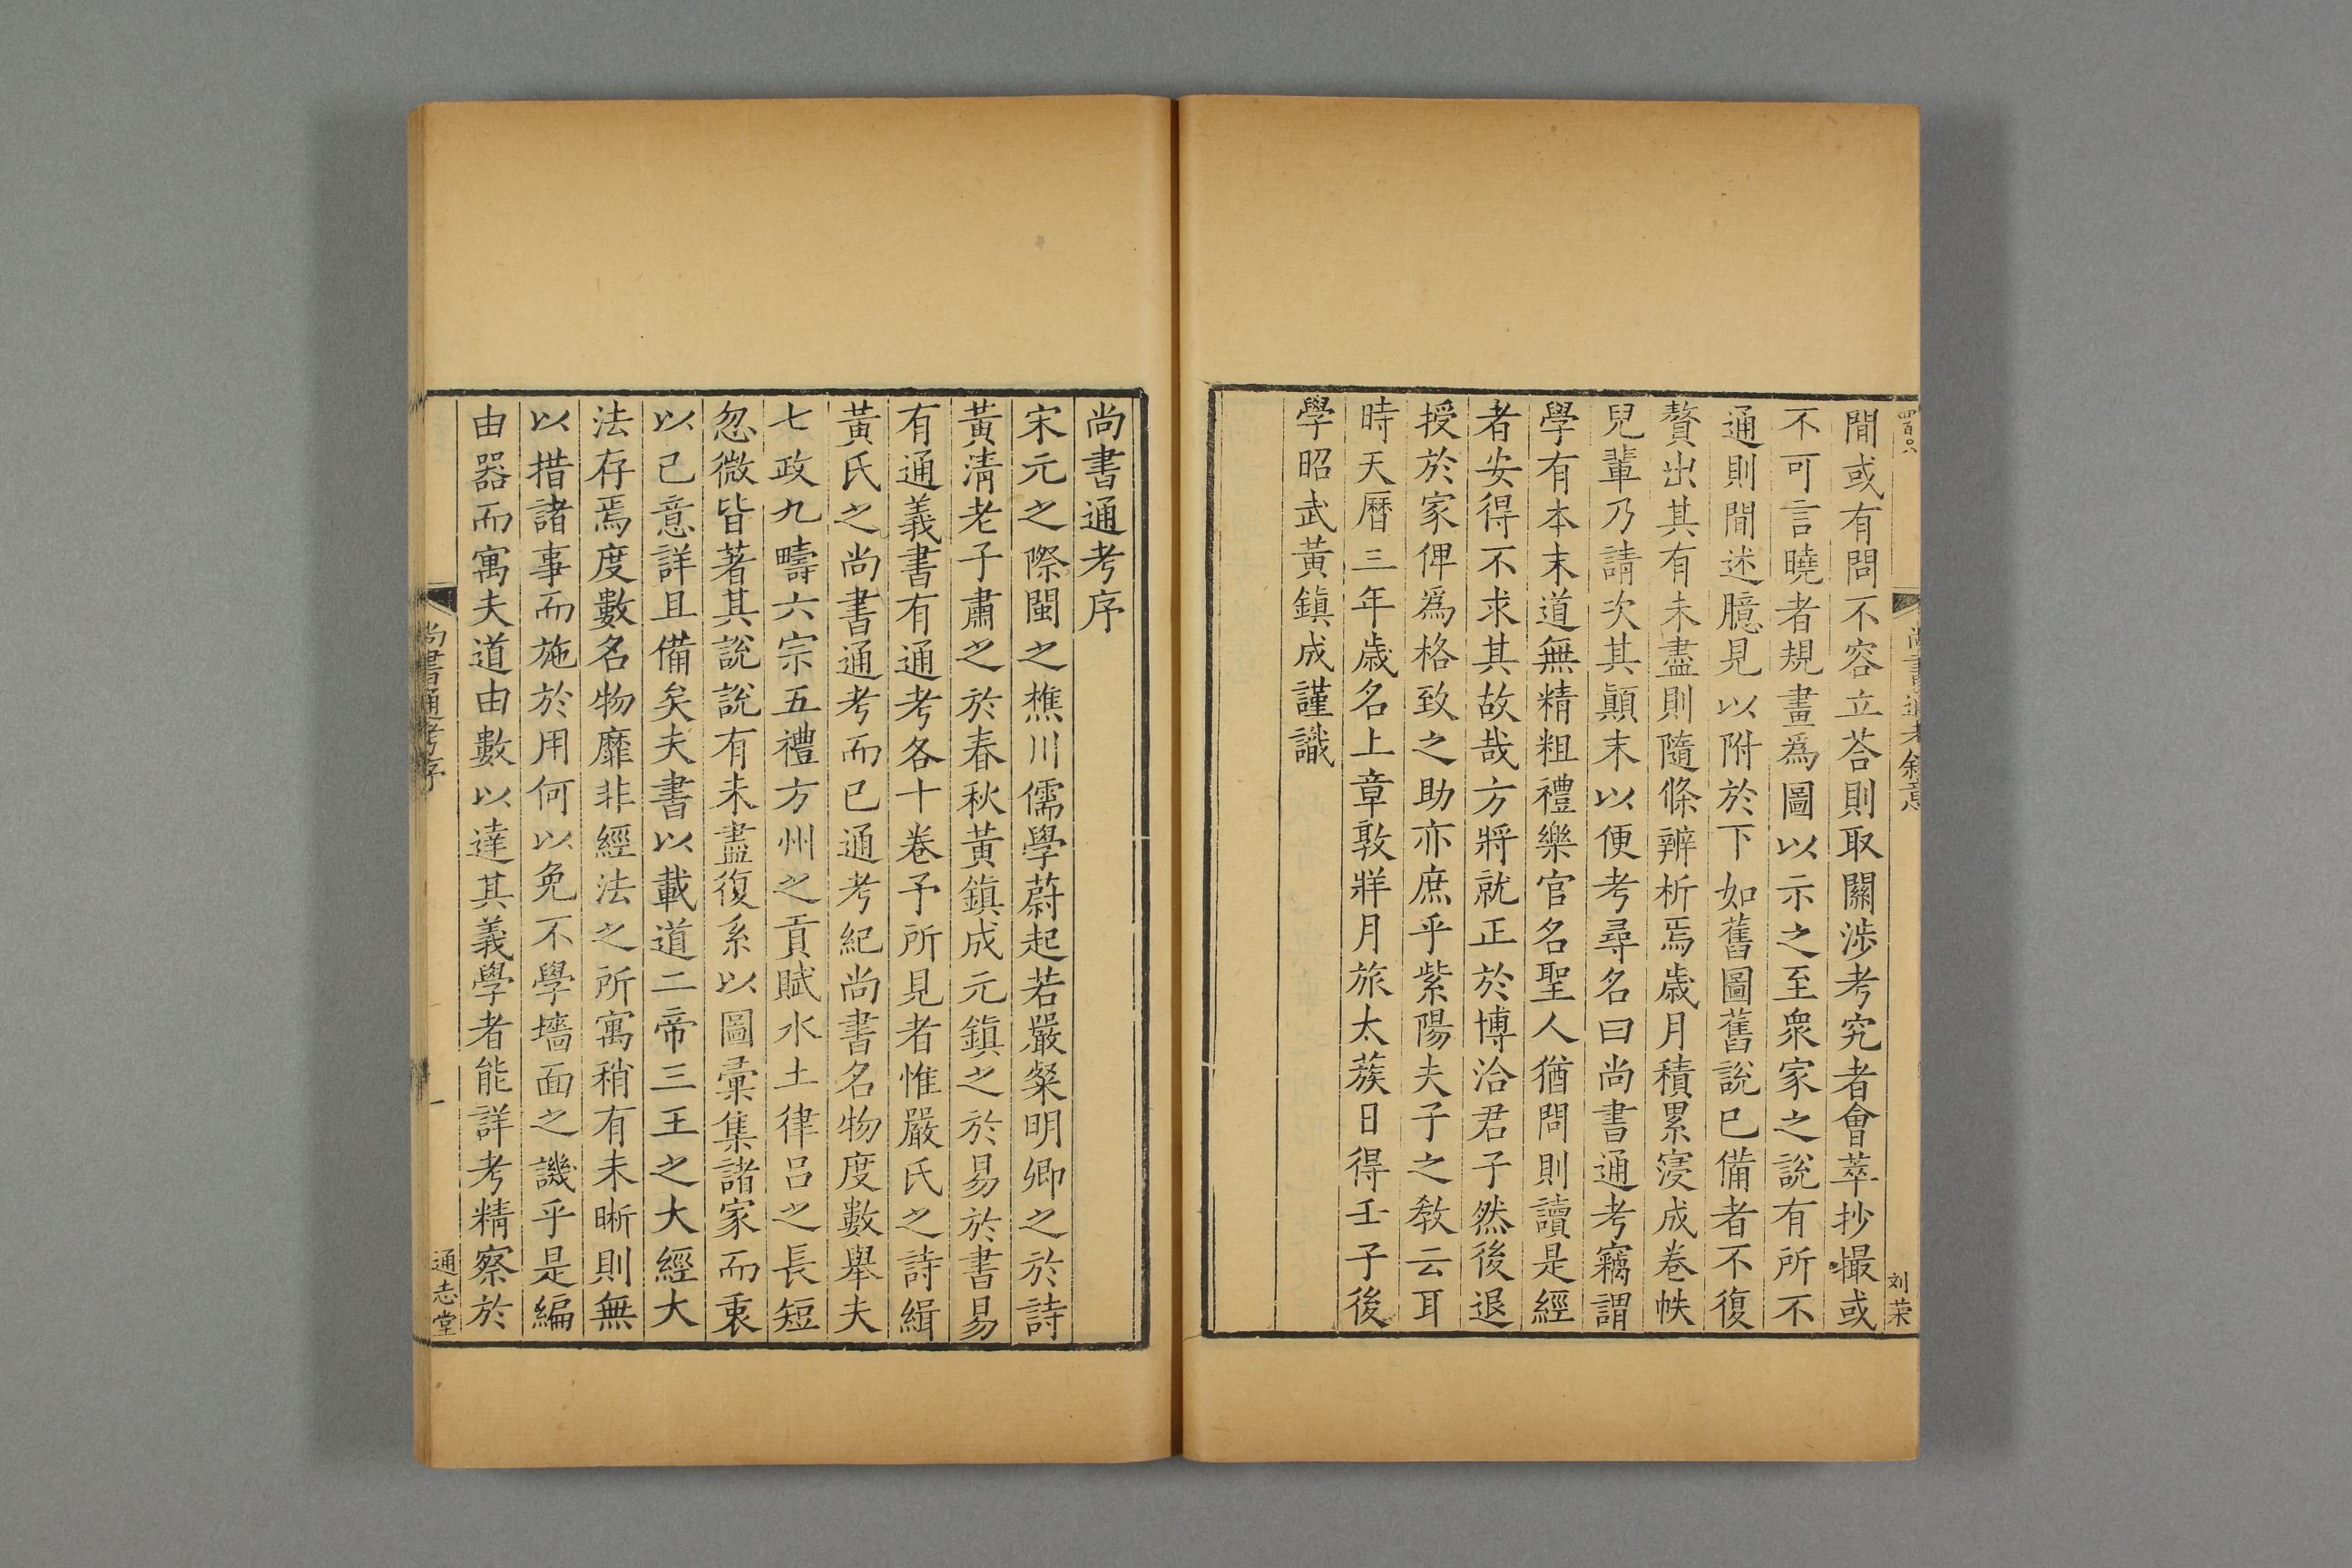 尚書通考叙意
刘荣
間或有問不容立荅則取關涉考究者會萃抄撮或
不可言曉者規畫爲圖以示之至衆家之說有所不
通則間述臆見以附於下如舊圖舊說已備者不復
贅出其有未盡則隨條辨析焉歲月積累寖成卷帙
兒輩乃請次其顚末以便考尋名曰尚書通考竊謂
學有本末道無精粗禮樂官名聖人猶問則讀是經
者安得不求其故哉方將就正於博洽君子然後退
授於家俾爲格致之助亦庶乎紫陽夫子之敎云耳
時天曆三年歲名上章敦牂月旅太蔟日得壬子後
學昭武黃鎭成謹識
尚書通考序
宋元之際閩之樵川儒學蔚起若嚴粲明卿之於詩
黃淸老子肅之於春秋黃鎭成元鎭之於易於書易
有通義書有通考各十卷予所見者惟嚴氏之詩緝
黃氏之尚書通考而已通考紀尚書名物度數舉夫
七政九疇六宗五禮方州之貢賦水土律呂之長短
忽微皆著其說說有未盡復系以圖彙集諸家而衷
以己意詳且備矣夫書以載道二帝三王之大經大
法存焉度數名物靡非經法之所寓稍有未晰則無
以措諸事而施於用何以免不學墻面之譏乎是編
由器而寓夫道由數以達其義學者能詳考精察於
尚書通考序
一
通志堂